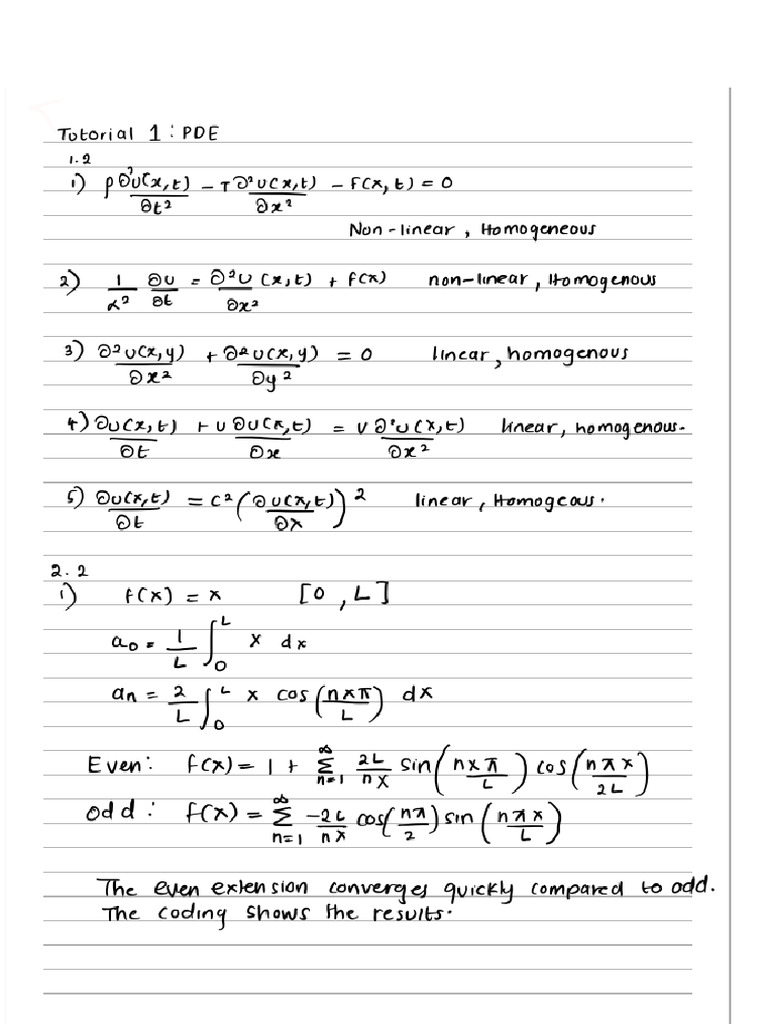 Tutorial 1: PDE
1.2
1) ρ ∂²U(x,t)/∂t² - T ∂²U(x,t)/∂x² - F(x,t) = 0
Non-linear, Homogeneous
2) 1/α² ∂U/∂t = ∂²U(x,t)/∂x² + f(x) non-linear, Homogenous
3) ∂²U(x,y)/∂x² + ∂²U(x,y)/∂y² = 0 linear, homogenous
4) ∂U(x,t)/∂t + U ∂U(x,t)/∂x = V ∂²U(x,t)/∂x² linear, homogenous.
5) ∂U(x,t)/∂t = C² (∂U(x,t)/∂x)² linear, Homogeous.
2.2
1) f(x) = x [0, L]
a₀ = 1/L ∫₀ᴸ x dx
aₙ = 2/L ∫₀ᴸ x cos(nxπ/L) dx
Even: f(x) = 1 + ∞Σn=1 2L/nx sin(nxπ/L) cos(nπx/2L)
Odd: f(x) = ∞Σn=1 -2L/nx cos(nπ/2) sin(nπx/L)
The even extension converges quickly compared to odd.
The coding shows the results.